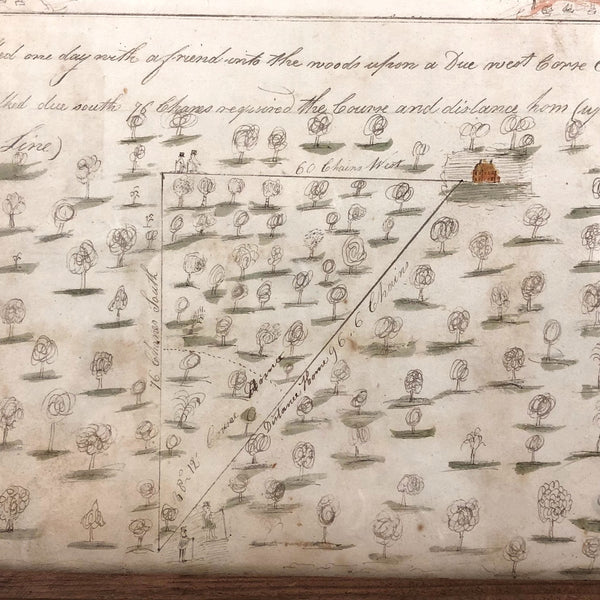 ed one day with a friend into the woods upon a Due west Corse
ked due south 76 Chanes required the Course and distance hom (up
Line)
60 Chains West
76 Chanes South
Corse Home
Distance Home 96..6 Chains
38.12